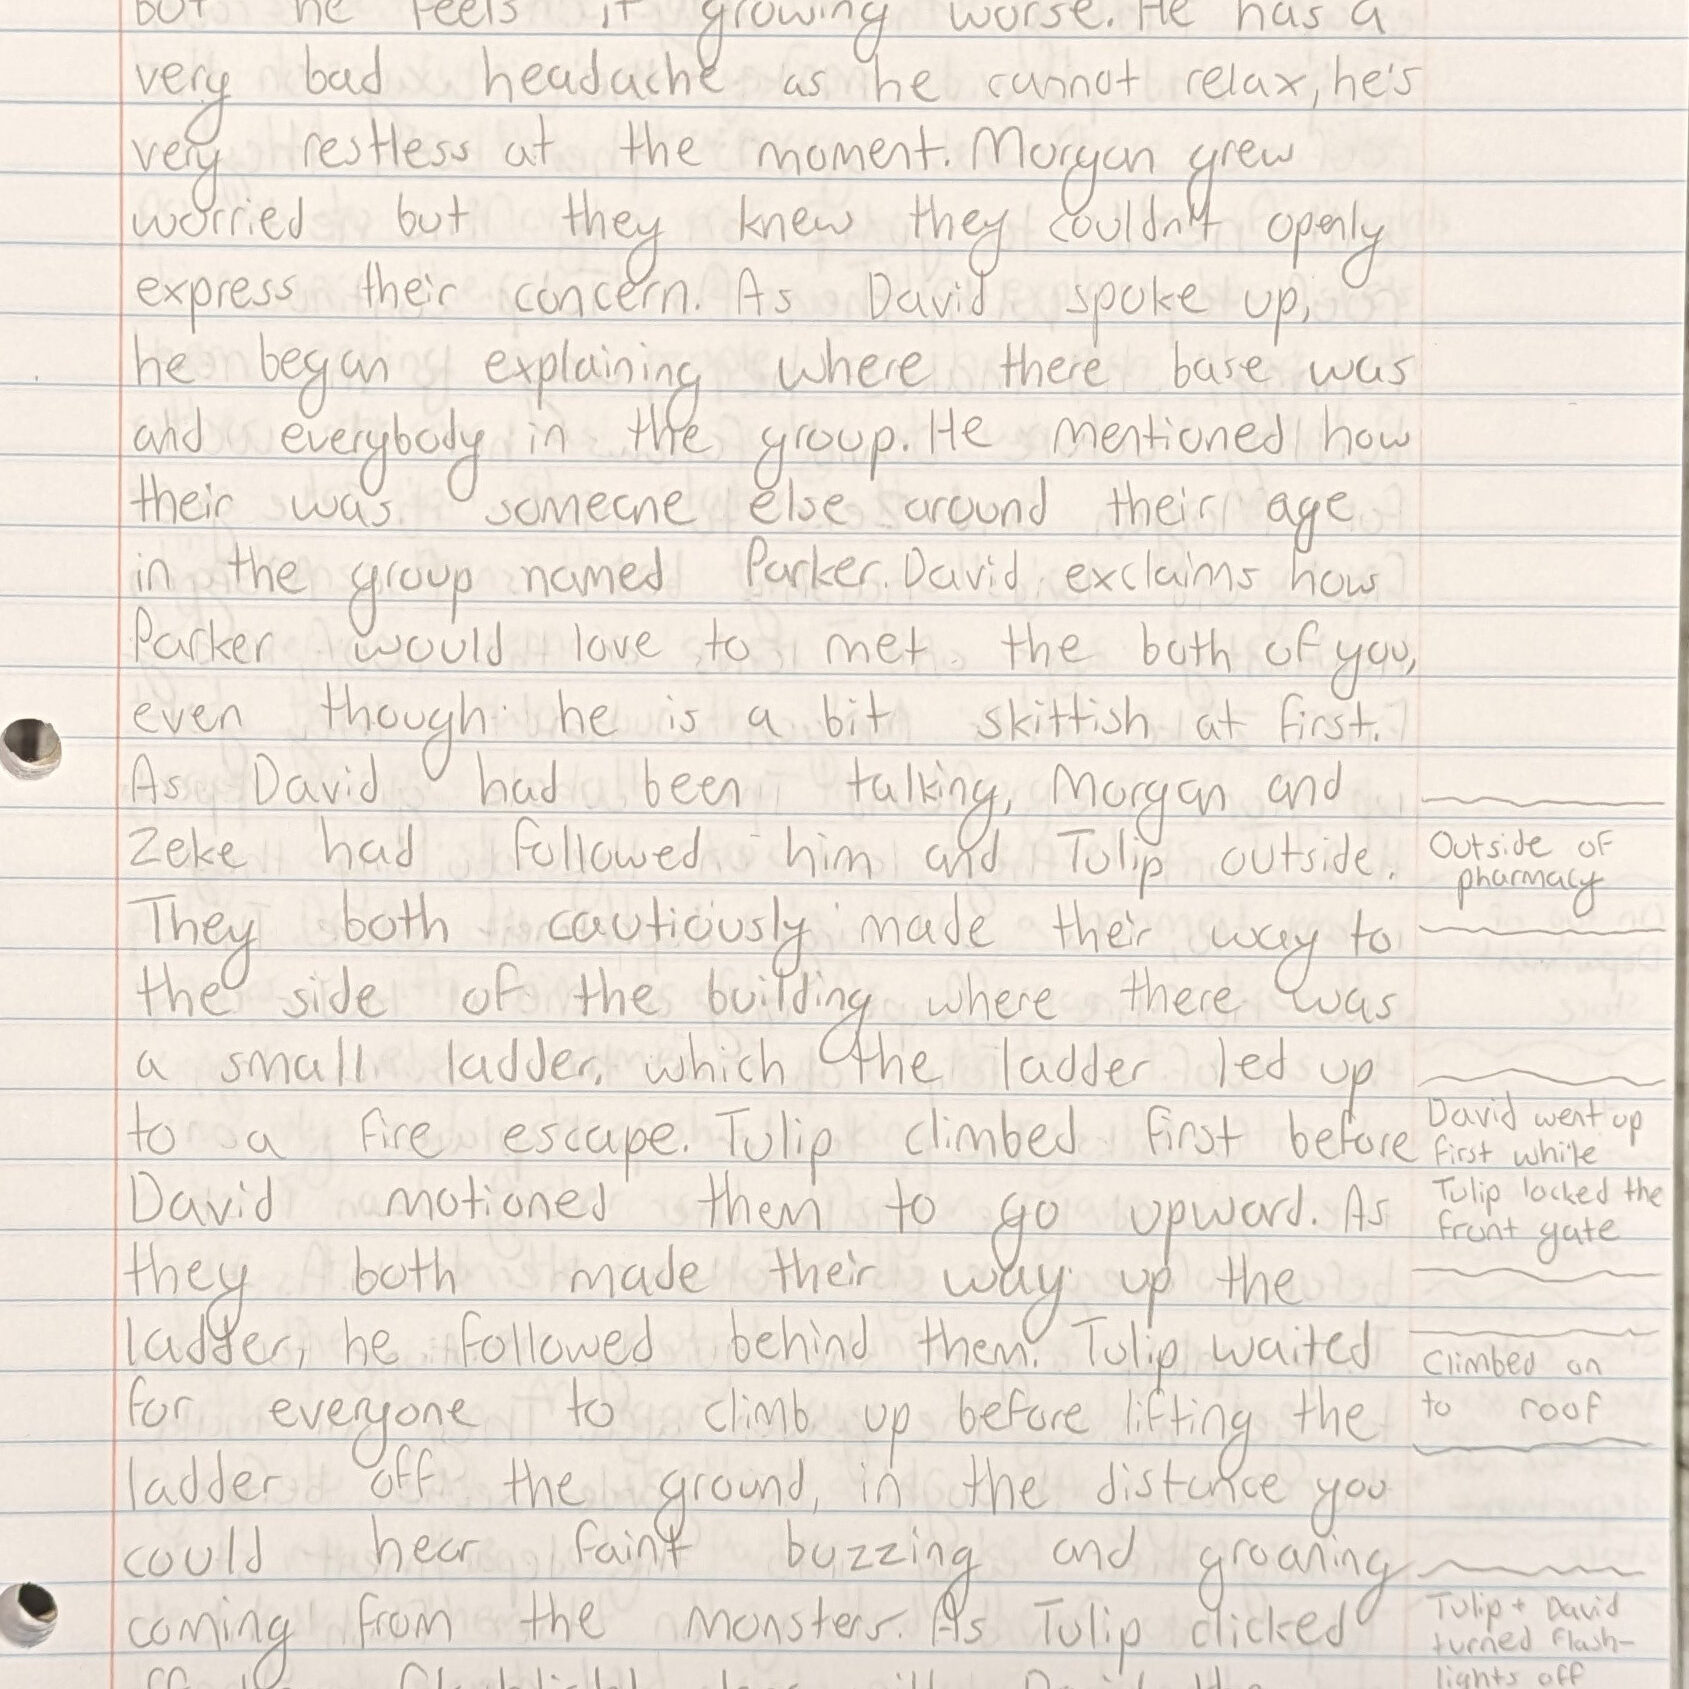 but he feels it growing worse. He has a
very bad headache as he cannot relax, he's
very restless at the moment. Morgan grew
worried but they knew they couldn't openly
express their concern. As David spoke up,
he began explaining where there base was
and everybody in the group. He mentioned how
their was someone else around their age
in the group named Parker. David exclaims how
Parker would love to met the both of you,
even though he is a bit skittish at first.
As David had been talking, Morgan and
Zeke had followed him and Tulip outside.
Outside of
pharmacy
They both cautiously made their way to
the side of the building where there was
a small ladder, which the ladder led up
to a fire escape. Tulip climbed first before
David went up
first while
Tulip locked the
front gate
David motioned them to go upward. As
they both made their way up the
ladder, he followed behind them. Tulip waited
Climbed on
to roof
for everyone to climb up before lifting the
ladder off the ground, in the distance you
could hear faint buzzing and groaning
coming from the monsters. As Tulip clicked
Tulip + David
turned flash-
lights off